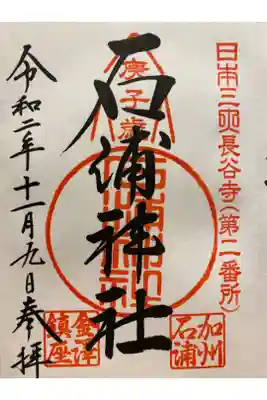 日本三所長谷寺(第二番所)
庚子歳
石浦神社
加州
石浦
金澤
鎮座
令和二年十一月九日奉拝